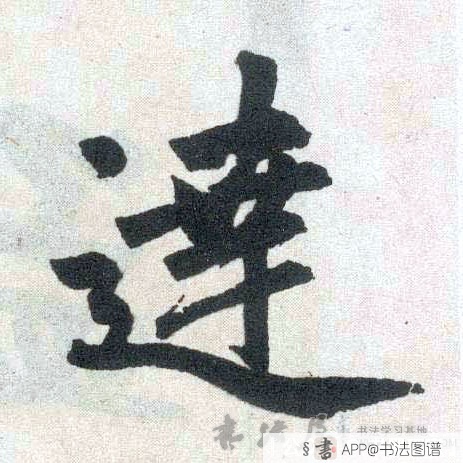 達
书法学习基地
§書 APP@书法图谱